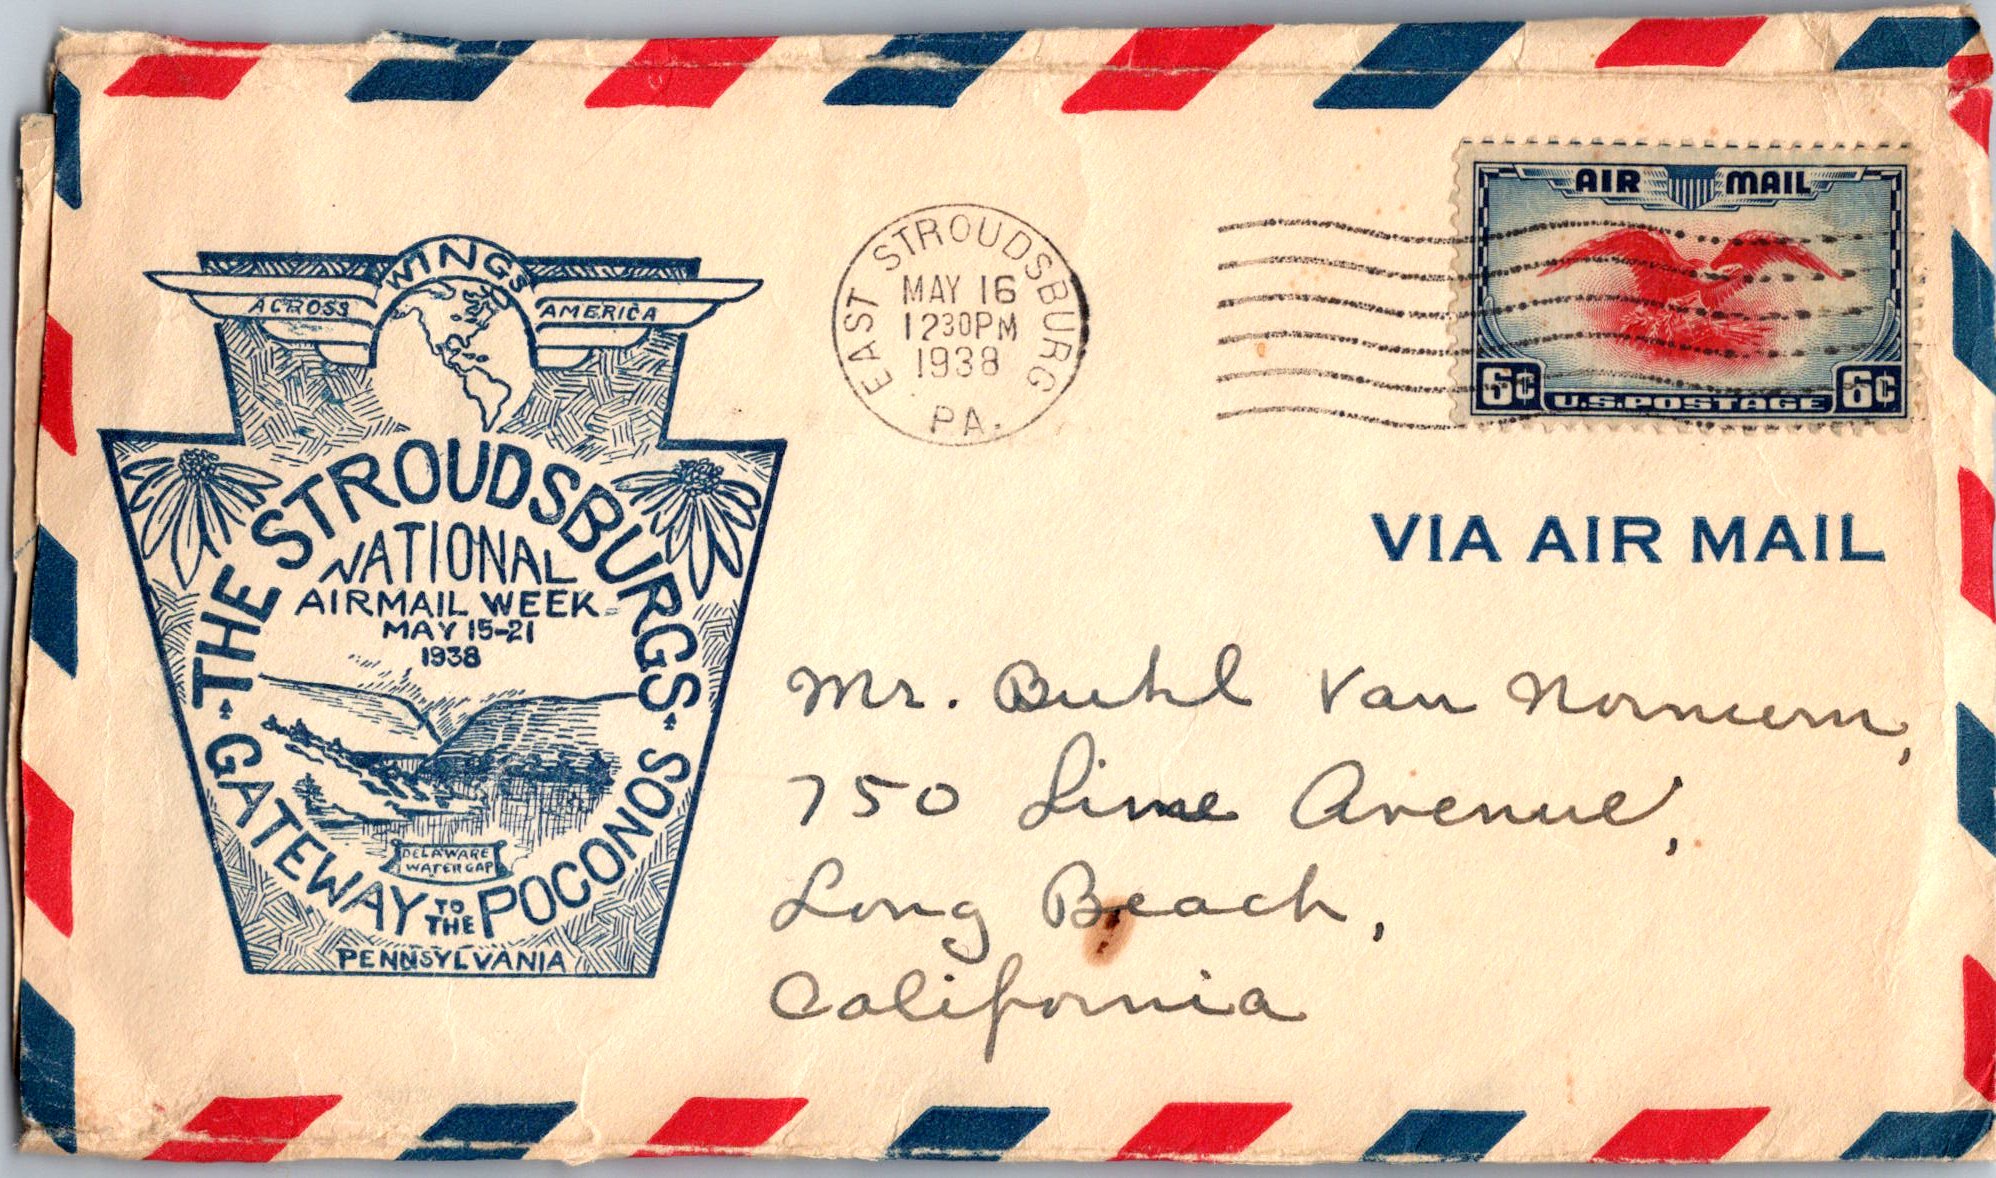 WINGS
ACROSS AMERICA
THE STROUDSBURGS
NATIONAL
AIRMAIL WEEK
MAY 15-21
1938
DELAWARE
WATER GAP
GATEWAY TO THE POCONOS
PENNSYLVANIA
EAST STROUDSBURG
MAY 16
1230PM
1938
PA.
AIR MAIL
6¢ U.S. POSTAGE 6¢
VIA AIR MAIL
Mr. Buhl Van
750 Lime Avenue,
Long Beach,
California